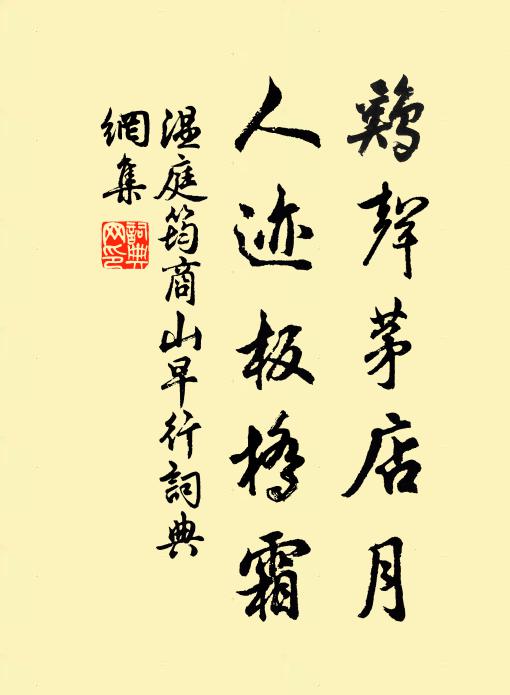 鷄聲茅店月
人迹板橋霜
温庭筠商山早行詞典
網集
詞典
网印